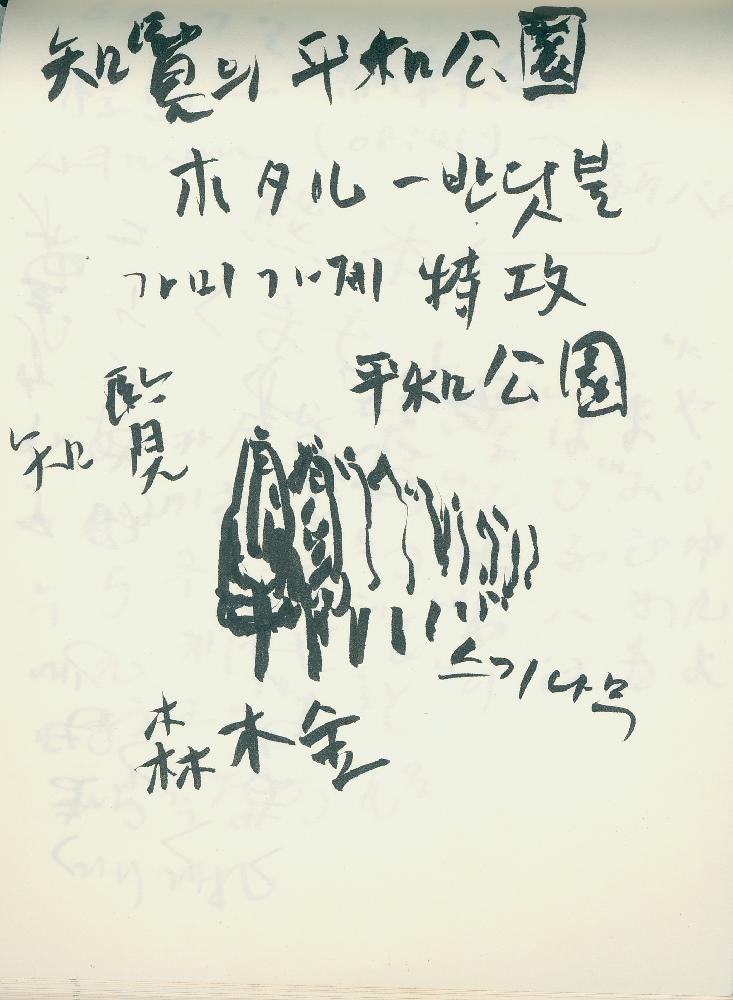 知覽의 平和公園
ホタル － 반딧불
가미가제 特攻
平和公園
知覽
스기나무
森木金